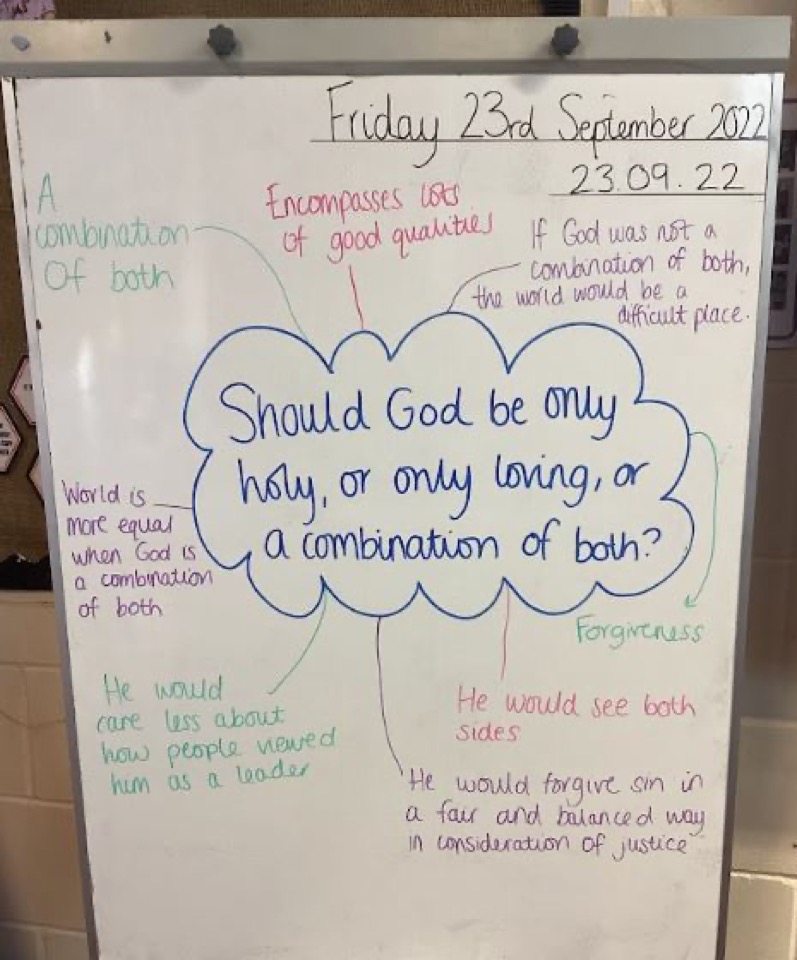 Friday 23rd September 2022
23.09.22
A
combination
Of both
Encompasses lots
of good qualities
If God was not a
combination of both,
the world would be a
difficult place.
Should God be only
holy, or only loving, or
a combination of both?
World is
more equal
when God is
a combination
of both
Forgiveness
He would
care less about
how people viewed
him as a leader
He would see both
sides
He would forgive sin in
a fair and balanced way
in consideration of justice